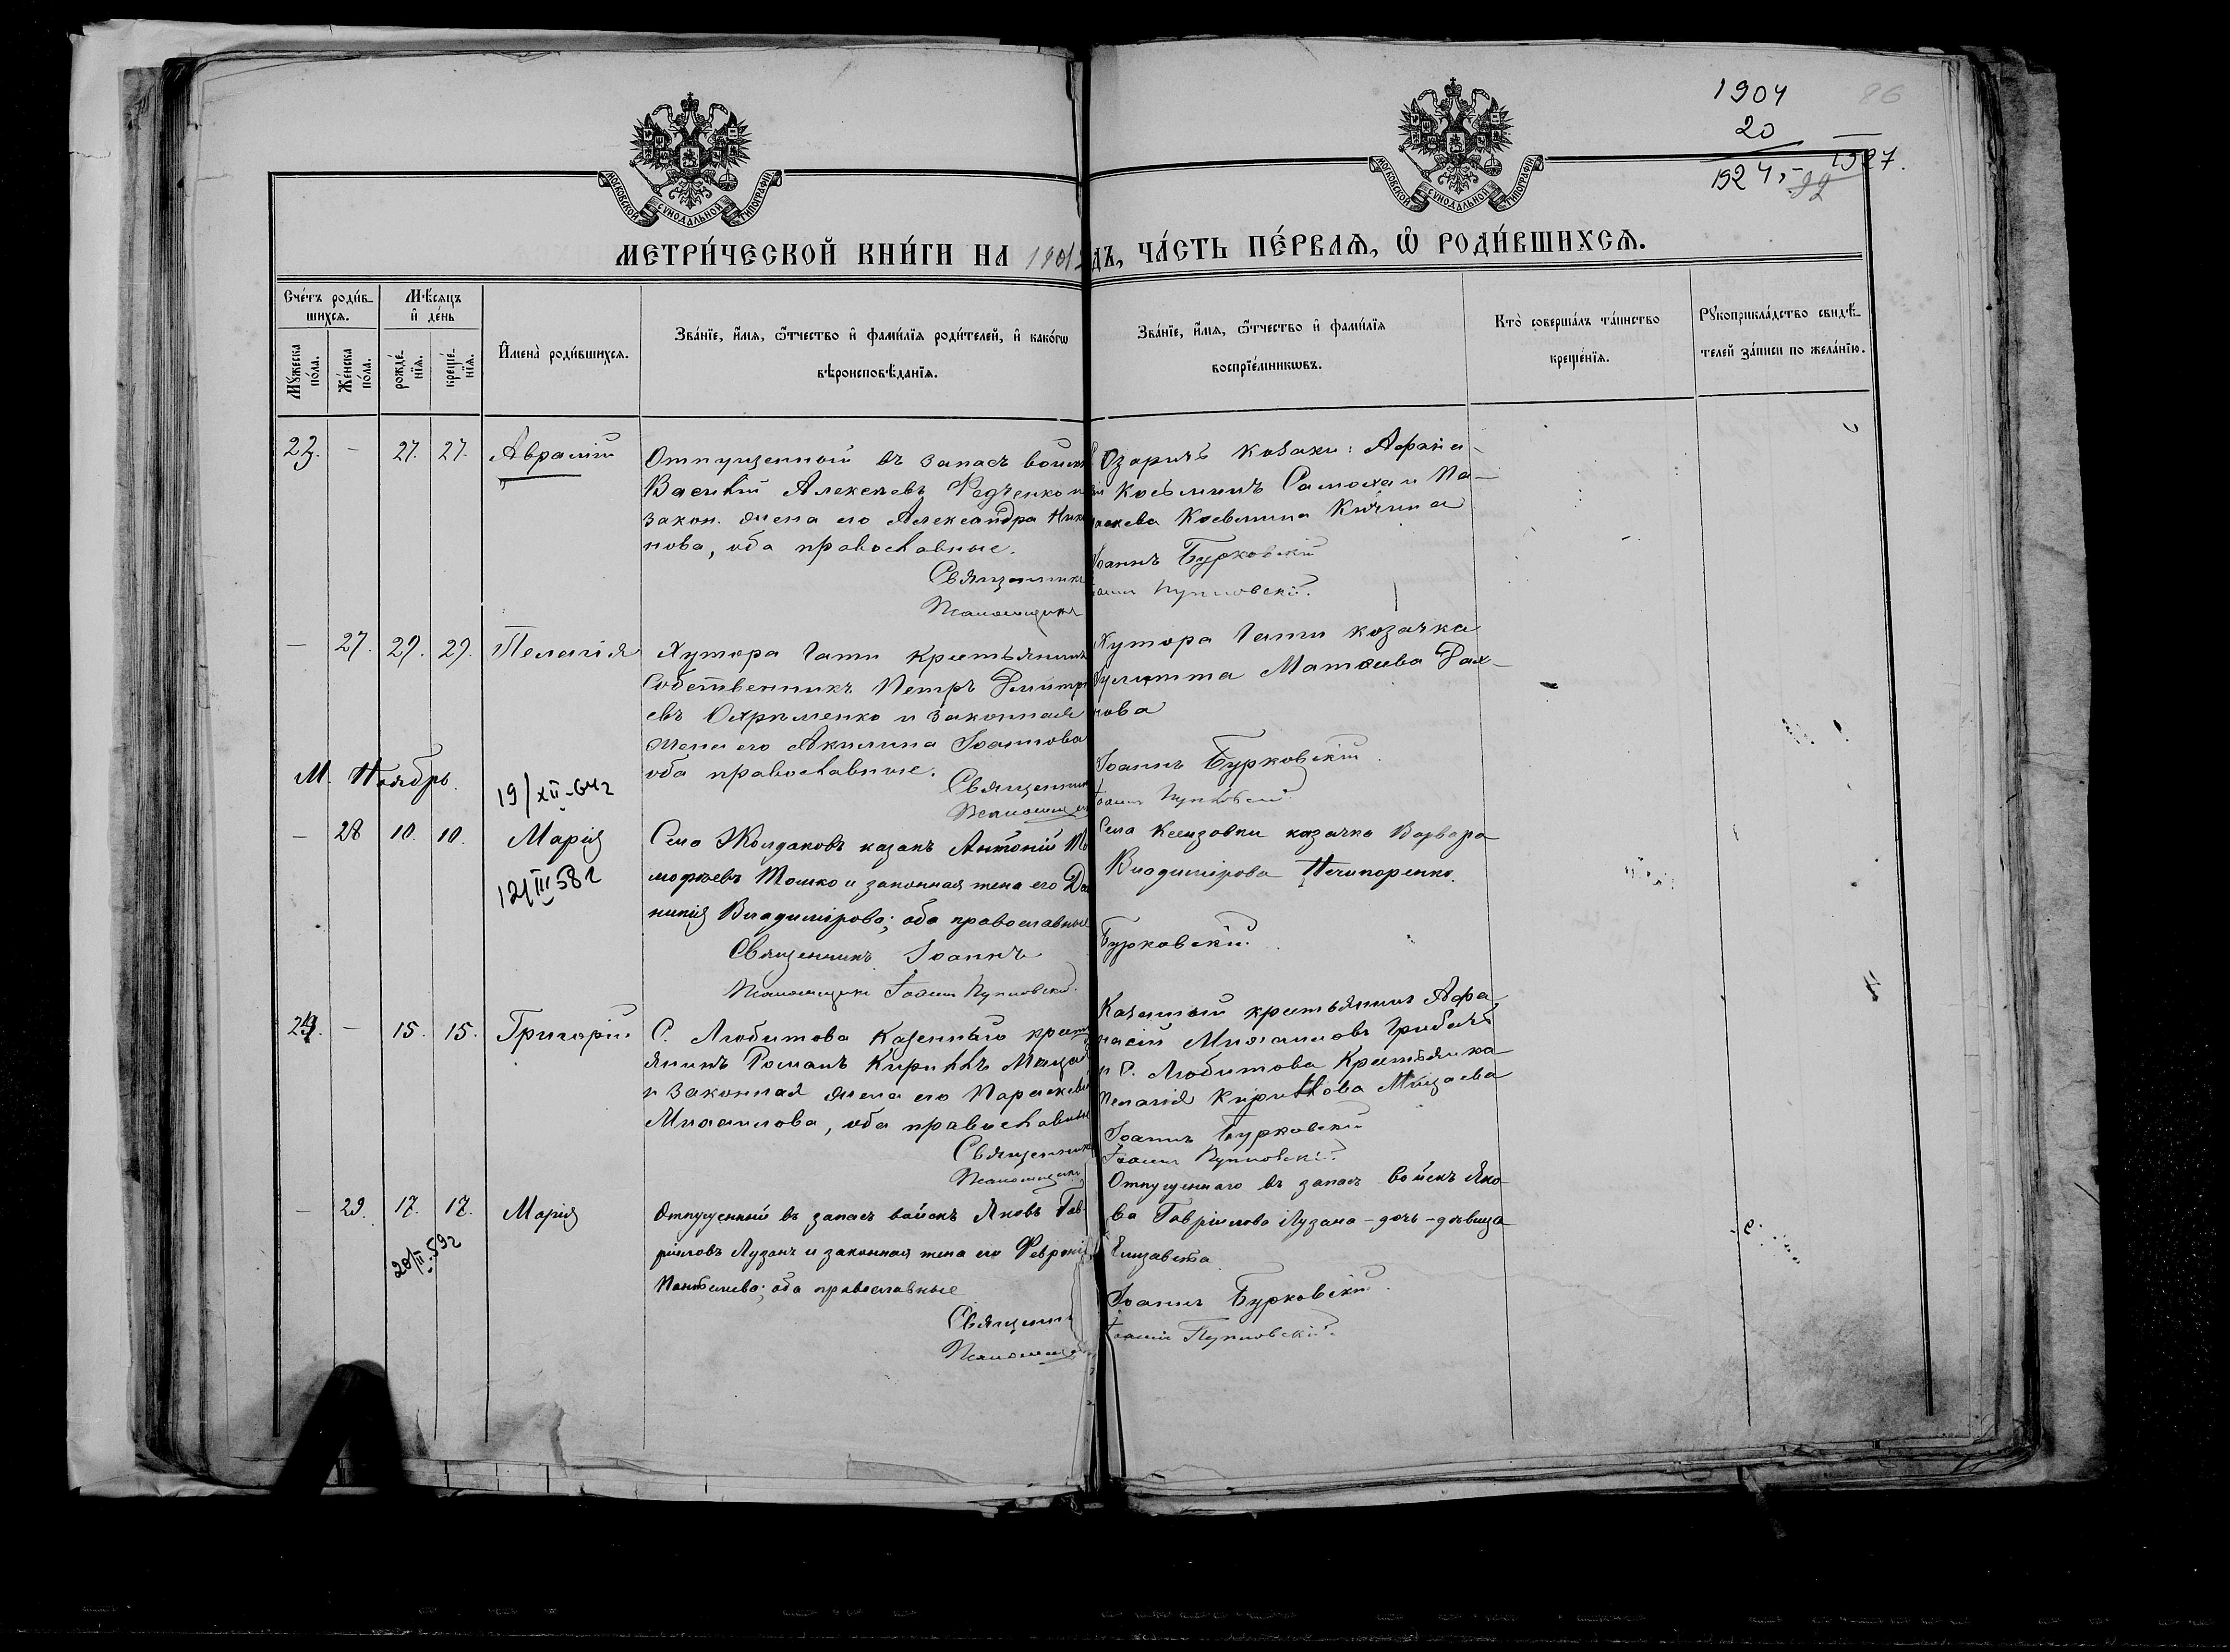 1904
20
1924,- 1927.
86
МОСКОВСКОЙ СѴНОДАЛЬНОЙ ТИПОГРАФІИ
МОСКОВСКОЙ СѴНОДАЛЬНОЙ ТИПОГРАФІИ
МЕТРИ́ЧЕСКОЙ КНИ́ГИ НА 1904 ДЪ, ЧА́СТЬ ПЕ́РВАѦ, Ѡ РОДИ́ВШИХСѦ.
Сче́тъ роди́в-
шихсѧ.
Мꙋ́жеска по́ла.
Же́нска по́ла.
Мѣ́сѧцъ
и҆ де́нь
рожде́-
нїѧ.
креще́-
нїѧ.
И҆мена̀ роди́вшихсѧ.
Зва́нїе, и҆́мѧ, ѻ҆́тчество и҆ фами́лїѧ роди́телей, и҆ како́гѡ
вѣроисповѣ́данїѧ.
Зва́нїе, и҆́мѧ, ѻ҆́тчество и҆ фами́лїѧ
воспрїе́мникѡвъ.
Кто̀ соверша́лъ та́инство
креще́нїѧ.
Рꙋкоприкла́дство свидѣ́-
телей за́писи по жела́нїю.
23. - 27. 27. Аврамій
Отпущенный въ запасъ войскъ
Василій Алексѣевъ Федченко и
закон. жена его Александра
нова, оба православные.
Священникъ
Псаломщикъ
Озаричъ козаки:
Косьминъ Самоха и Па-
раскева Косьмина
Іоаннъ Бурковскій
- 27. 29. 29. Пелагія
Хутора Гати крестьянинъ
собственникъ Петръ Димитрі
евъ Охрименко и законная
жена его Акилина Іоаннова
оба православные.
Священникъ
Псаломщикъ
Хутора Гати козачка
Матѳеева Дах-
нова
Іоаннъ Бурковскій.
М. Ноябрь.
19/XII-64г
- 28 10. 10. Марія
12/III 58г
Села Жолдаковъ казакъ Антоній
Тошко и законная жена его
Владимірова; оба православные
Священникъ Іоаннъ
Псаломщикъ
Села казачка Варвара
Владимірова Нечипоренко.
Бурковскій.
24. - 15. 15. Григорій
С. Любитова казеннаго крест
янинъ Романъ Кирилловъ
и законная жена его Параскева
Михаилова, оба православные
Священникъ
Псаломщикъ
Казенный крестьянинъ Афа-
насій Михаиловъ Грибачъ
и С. Любитова крестьянка
Пелагія Кириллова Мищаева
Іоаннъ Бурковскій
- 29. 17. 17. Марія
28/II.59г
Отпущенный въ запасъ войскъ Яковъ Гав-
ріиловъ Лузанъ и законная жена его Февронія
Пантелиева; оба православные
Священникъ
Псаломщикъ
Отпущеннаго въ запасъ войскъ Яко-
ва Гавріилова Лузана - дочь - дѣвица
Елизавета
Іоаннъ Бурковскій.